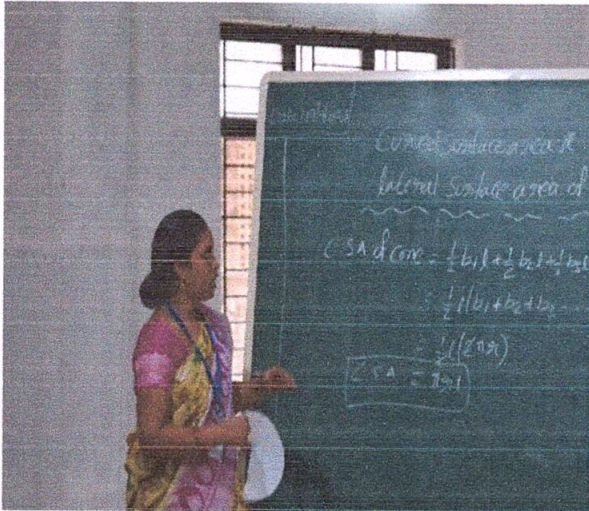 Curved surface area &
lateral surface area of
CSA of cone = ½b₁l + ½b₂l + ½b₃l
= ½l(b₁ + b₂ + b₃ ...
= ½l(2πr)
CSA = πrl